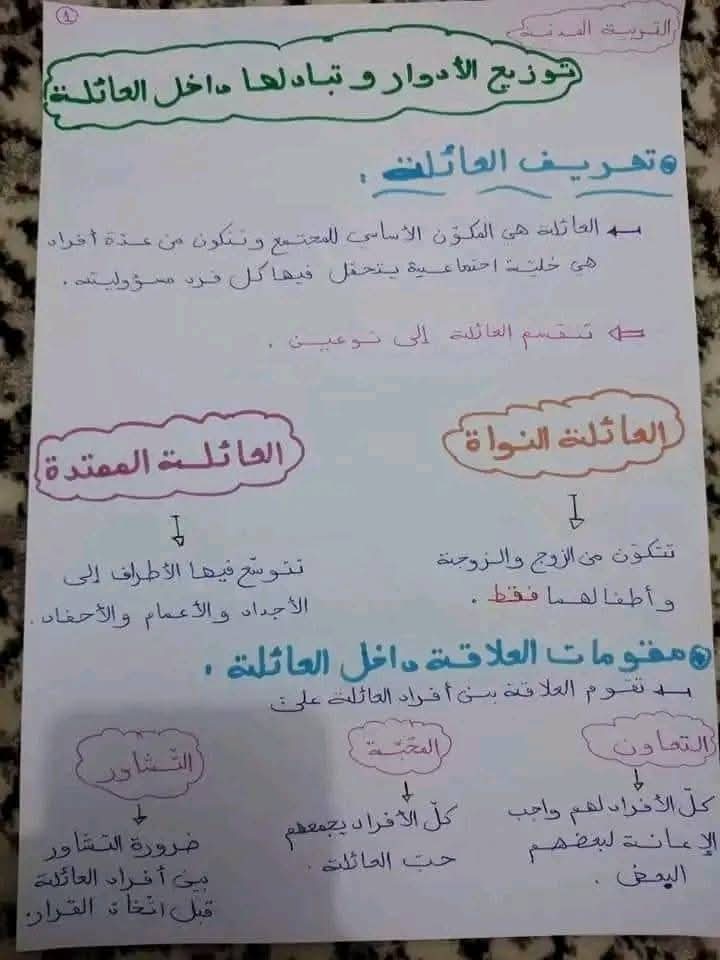 ١
التربية المدنية
توزيع الأدوار و تبادلها داخل العائلة
تعريف العائلة :
العائلة هي المكوّن الأساسي للمجتمع و تتكون من عدّة أفراد
هي خليّة اجتماعية يتحمّل فيها كل فرد مسؤوليته .
تنقسم العائلة إلى نوعين .
العائلة النواة
تتكوّن من الزوج والزوجة
و أطفالهما فقط .
العائلة الممتدة
تتوسّع فيها الأطراف إلى
الأجداد والأعمام والأحفاد .
مقومات العلاقة داخل العائلة :
تقوم العلاقة بين أفراد العائلة على :
التعاون
كلّ الأفراد لهم واجب
الإعانة لبعضهم
البعض .
المحبّة
كلّ الأفراد يجمعهم
حبّ العائلة .
التّشاور
ضرورة التشاور
بين أفراد العائلة
قبل اتّخاذ القرار.